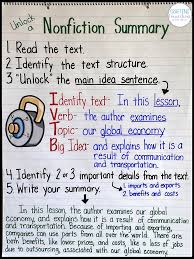 CRAFTING
Unlock a Nonfiction Summary
1 Read the text.
2 Identify the text structure.
3 "Unlock" the main idea sentence.
Identify text: In this lesson,
Verb: the author examines
Topic: our global economy
Big Idea: and explains how it is a
result of communication
and transportation.
4 Identify 2 or 3 important details from the text.
1 imports and exports
2 benefits and costs
5 Write your summary.
In this lesson, the author examines our global
economy and explains how it is a result of communication
and transportation. Because of importing and exporting,
companies can use parts from all over the world. There are
both benefits, like lower prices, and costs, like a loss of jobs
due to outsourcing, associated with our global economy.